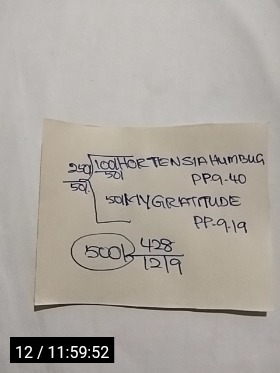 250/ 100/HORTENSIA HUMBUG
50/ 50/ PP.9.40
50/KIYGRATITUDE
PP-9.19
500/ 428
1219
12 / 11:59:52